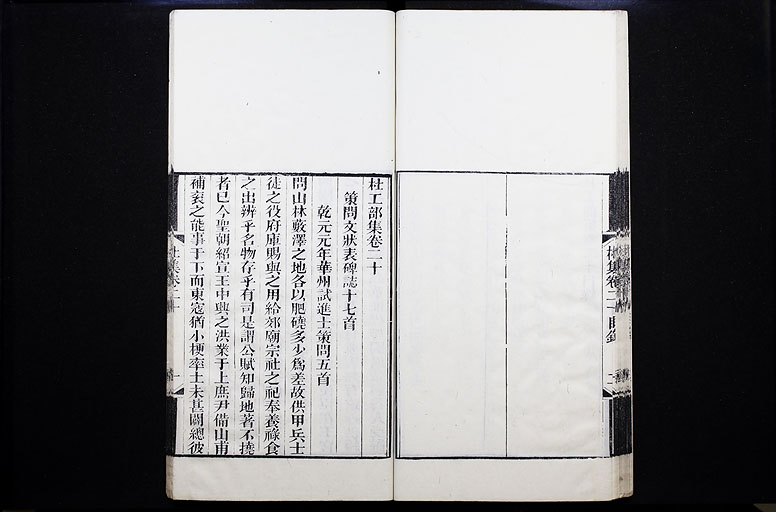 杜集卷二十目錄
二
杜工部集卷二十
策問文狀表碑誌十七首
乾元元年華州試進士策問五首
問山林藪澤之地各以肥磽多少爲差故供甲兵士
徒之役府庫賜與之用給郊廟宗社之祀奉養祿食
之出辨乎名物存乎有司是謂公賦知歸地著不撓
者已今聖朝紹宣王中興之洪業于上庶尹備山甫
補袞之能事于下而東寇猶小梗率土未甚闢總彼
杜集卷二十
一